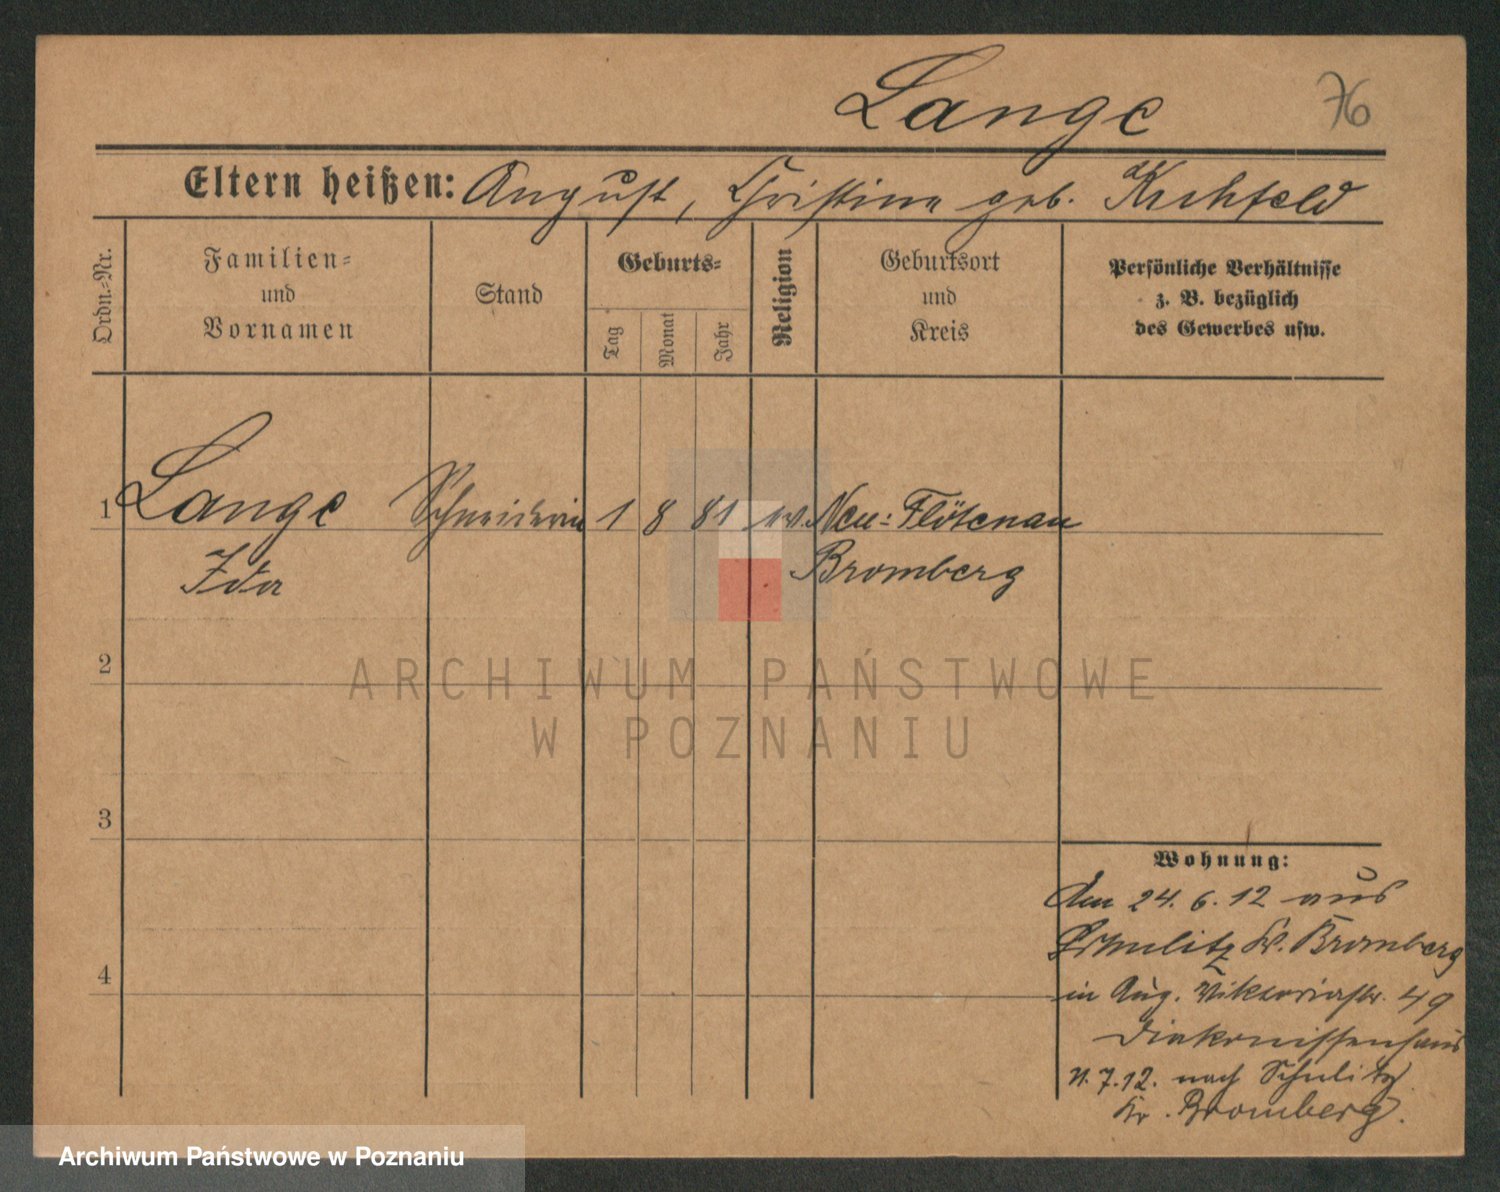 Lange 76
Eltern heißen: August, Christine geb. Kirchfeld
Ordn.-Nr.
Familien-
und
Vornamen
Stand
Geburts-
Tag
Monat
Jahr
Religion
Geburtsort
und
Kreis
Persönliche Verhältnisse
z. B. bezüglich
des Gewerbes usw.
1 Lange Schneiderin 1 8 81 ev. Neu-Flötenau
Ida Bromberg
2
ARCHIWUM PAŃSTWOWE
W POZNANIU
3
Wohnung:
den 24. 6. 12 aus
Schulitz Kr. Bromberg
4
in Aug. Viktoriastr. 49
Diakonissenhaus
7. 12. nach Schulitz
Kr. Bromberg.
Archiwum Państwowe w Poznaniu